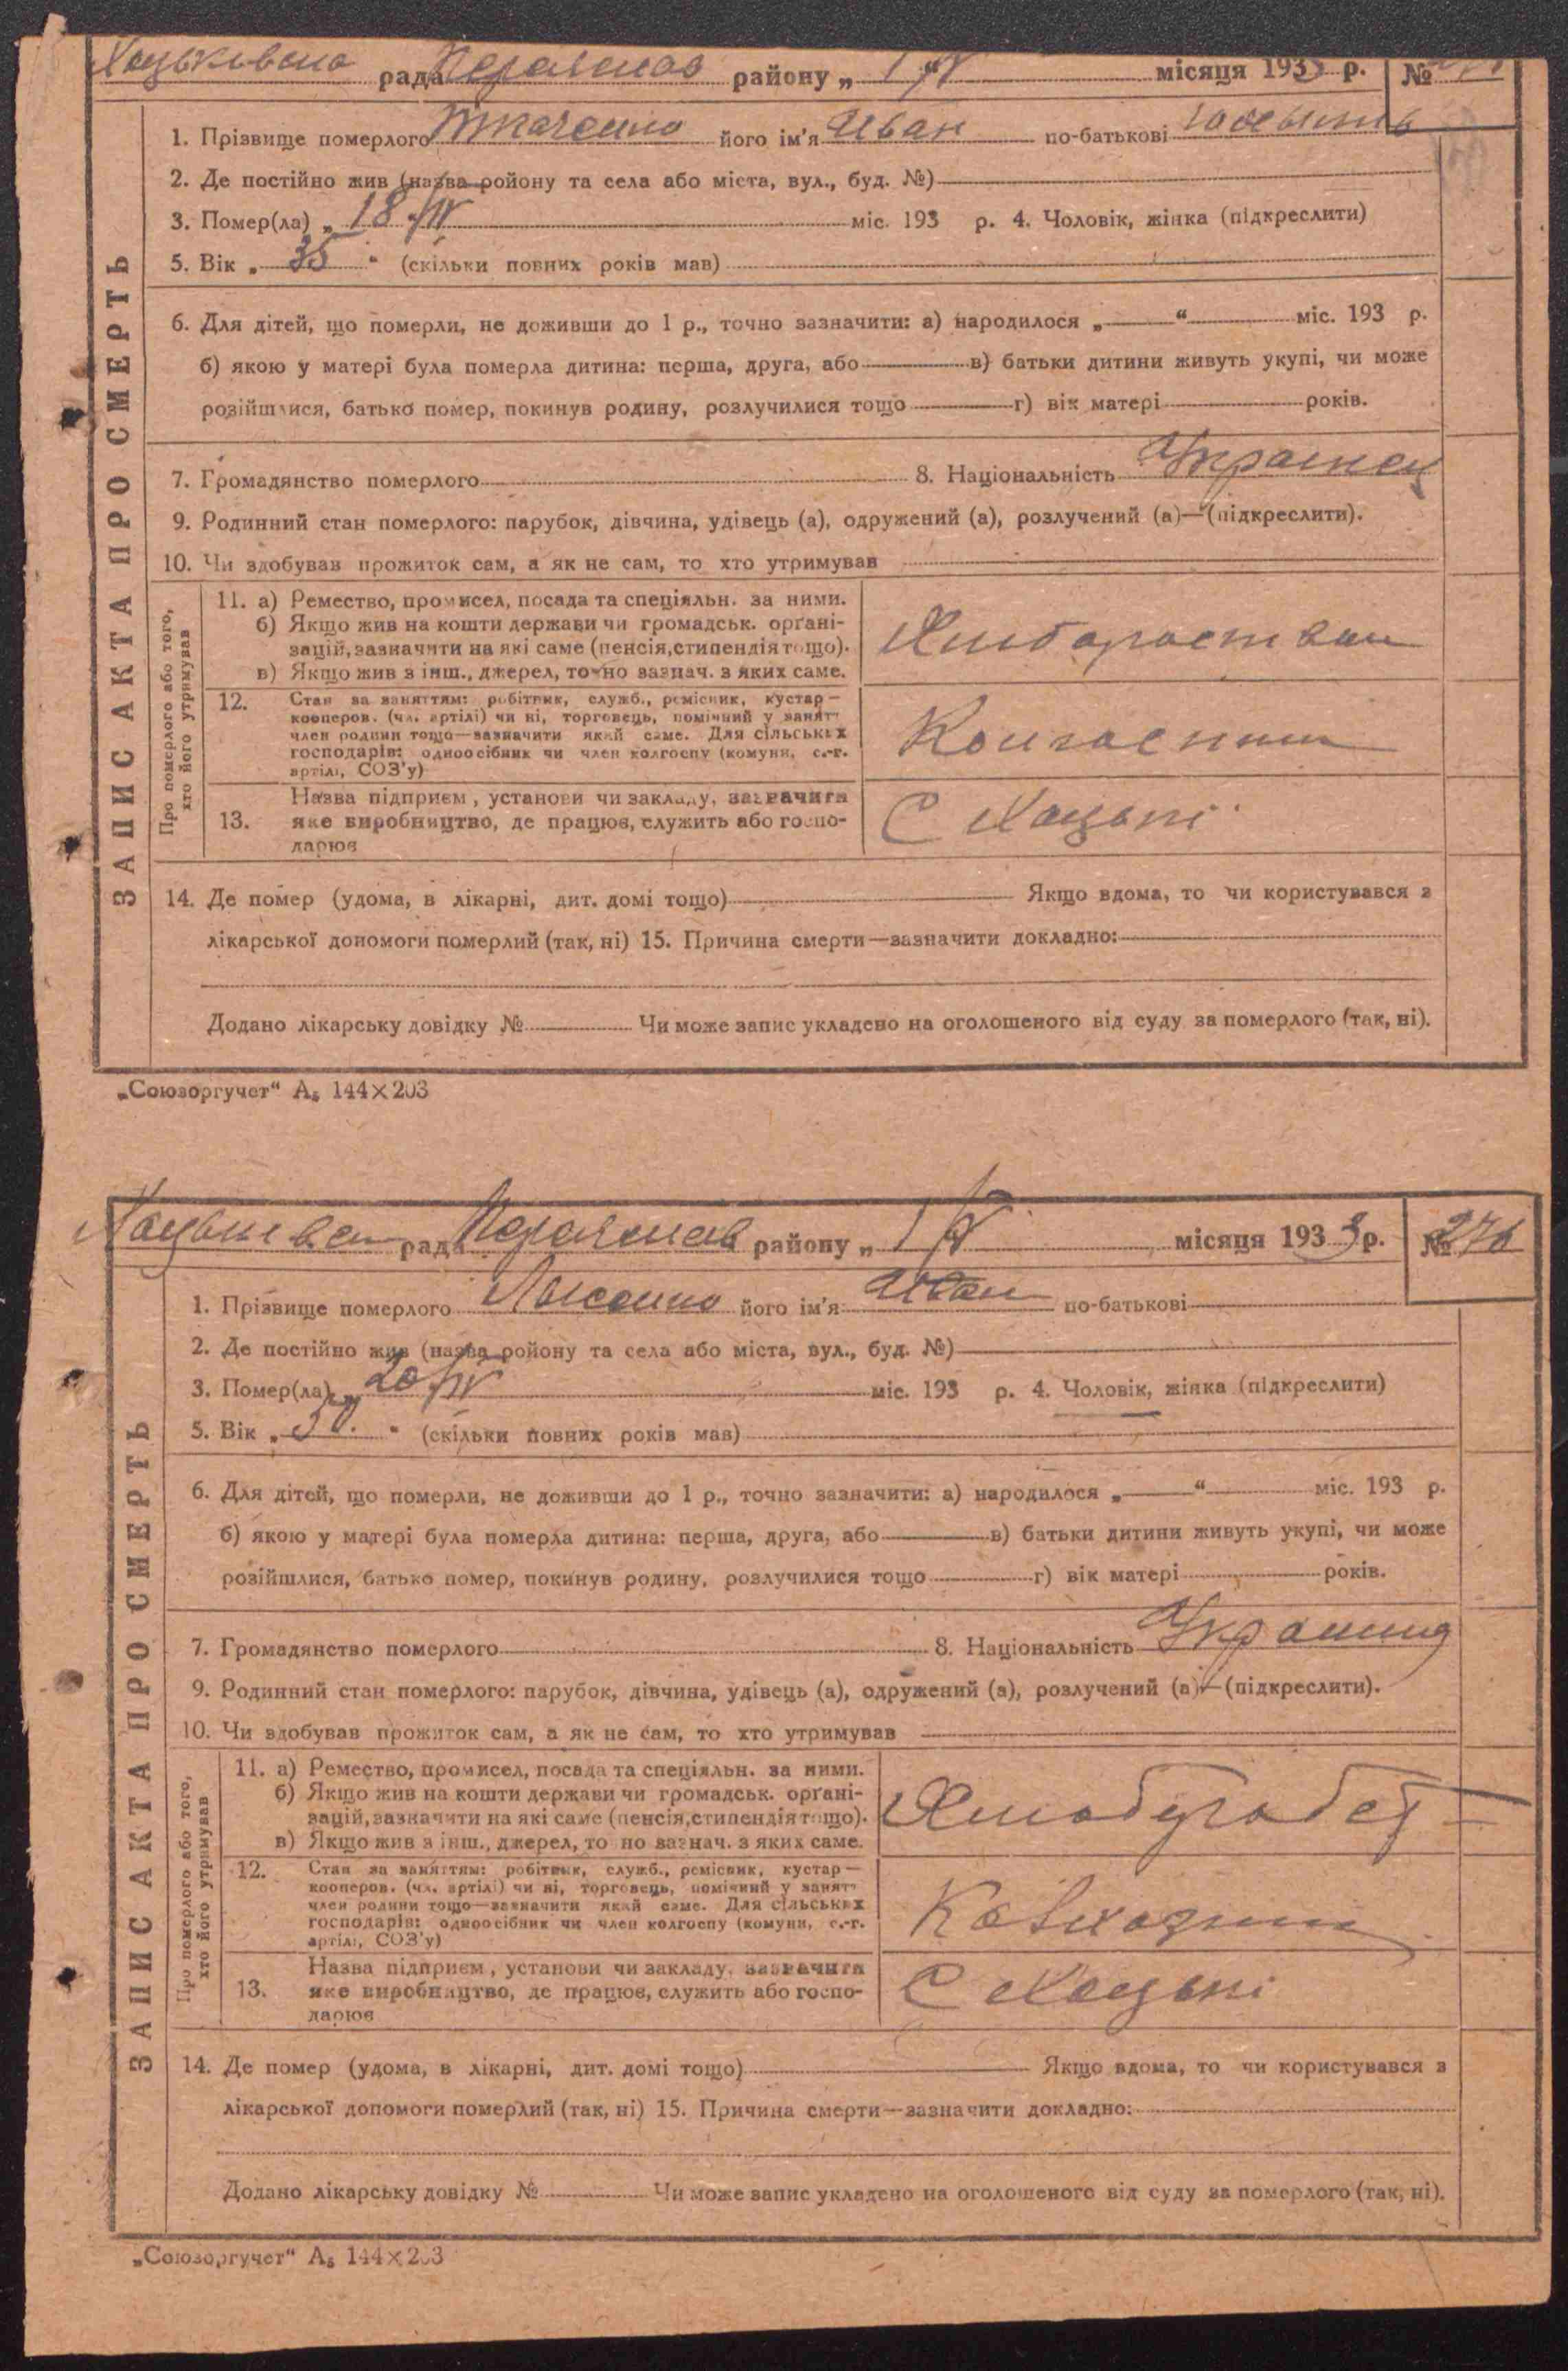 Хацьківська рада Переяслав району „ 1/V місяця 1933 р. №
1. Прізвище померлого Ткаченко його ім'я Иван по-батькові
2. Де постійно жив (назва ройону та села або міста, вул., буд. №)
3. Помер(ла) „ 18/IV міс. 193 р. 4. Чоловік, жінка (підкреслити)
5. Вік „ 35 " (скільки повних років мав)
6. Для дітей, що померли, не доживши до 1 р., точно зазначити: а) народилося „ “ міс. 193 р.
б) якою у матері була померла дитина: перша, друга, або в) батьки дитини живуть укупі, чи може
розійшлися, батько помер, покинув родину, розлучилися тощо г) вік матері років.
7. Громадянство померлого 8. Національність Украинец
9. Родинний стан померлого: парубок, дівчина, удівець (а), одружений (а), розлучений (а)—(підкреслити).
10. Чи здобував прожиток сам, а як не сам, то хто утримував
ЗАПИС АКТА ПРО СМЕРТЬ
Про померлого або того, хто його утримував
11. а) Ремество, промисел, посада та спеціяльн. за ними.
б) Якщо жив на кошти держави чи громадськ. орґані-
зацій, зазначити на які саме (пенсія, стипендія тощо).
в) Якщо жив з інш., джерел, точно зазнач. з яких саме.
12. Стан за заняттям: робітник, служб., ремісник, кустар—
кооперов. (чл. артілі) чи ні, торговець, помічний у занятт
член родини тощо—зазначити який саме. Для сільських
господарів: одноосібник чи член колгоспу (комуни, с.-г.
артілі, СОЗ'у)
Колгоспник
13. Назва підприєм, установи чи закладу, зазначити
яке виробництво, де працює, служить або госпо-
дарює
С Хацьки
14. Де помер (удома, в лікарні, дит. домі тощо) Якщо вдома, то чи користувався з
лікарської допомоги померлий (так, ні) 15. Причина смерти—зазначити докладно:
Додано лікарську довідку № Чи може запис укладено на оголошеного від суду за померлого (так, ні).
„Союзоргучет“ А₅ 144×203
рада Переяслав району „ 1/V місяця 1933 р. № 276
1. Прізвище померлого Лисенко його ім'я Иван по-батькові
2. Де постійно жив (назва ройону та села або міста, вул., буд. №)
3. Помер(ла) „ 20/IV міс. 193 р. 4. Чоловік, жінка (підкреслити)
5. Вік „ 30. " (скільки повних років мав)
6. Для дітей, що померли, не доживши до 1 р., точно зазначити: а) народилося „ “ міс. 193 р.
б) якою у матері була померла дитина: перша, друга, або в) батьки дитини живуть укупі, чи може
розійшлися, батько помер, покинув родину, розлучилися тощо г) вік матері років.
7. Громадянство померлого 8. Національність
9. Родинний стан померлого: парубок, дівчина, удівець (а), одружений (а), розлучений (а)—(підкреслити).
10. Чи здобував прожиток сам, а як не сам, то хто утримував
ЗАПИС АКТА ПРО СМЕРТЬ
Про померлого або того, хто його утримував
11. а) Ремество, промисел, посада та спеціяльн. за ними.
б) Якщо жив на кошти держави чи громадськ. орґані-
зацій, зазначити на які саме (пенсія, стипендія тощо).
в) Якщо жив з інш., джерел, то но зазнач. з яких саме.
12. Стан за заняттям: робітник, служб., ремісник, кустар—
кооперов. (чл. артілі) чи ні, торговець, помічний у занятт
член родини тощо—зазначити який саме. Для сільських
господарів: одноосібник чи член колгоспу (комуни, с.-г.
артілі, СОЗ'у)
13. Назва підприєм, установи чи закладу, зазначити
яке виробництво, де працює, служить або госпо-
дарює
С Хацьки
14. Де помер (удома, в лікарні, дит. домі тощо) Якщо вдома, то чи користувався з
лікарської допомоги померлий (так, ні) 15. Причина смерти—зазначити докладно:
Додано лікарську довідку № Чи може запис укладено на оголошеного від суду за померлого (так, ні).
„Союзоргучет“ А₅ 144×203